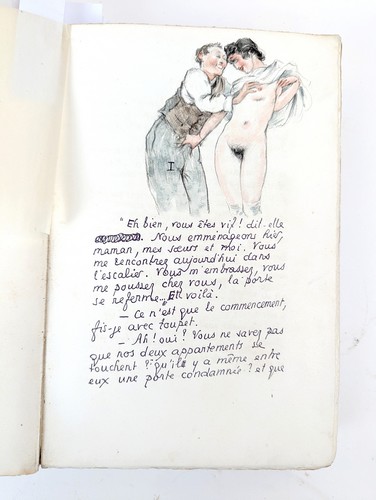 I
"Eh bien, vous êtes vif! dit-elle
Nous emménageons hier,
maman, mes sœurs et moi. Vous
me rencontrez aujourd'hui dans
l'escalier. Vous m'embrassez, vous
me poussez chez vous, la porte
se referme... Et voilà.
— Ce n'est que le commencement,
fis-je avec toupet.
— Ah! oui? Vous ne savez pas
que nos deux appartements se
touchent? qu'il y a même entre
eux une porte condamnée? et que